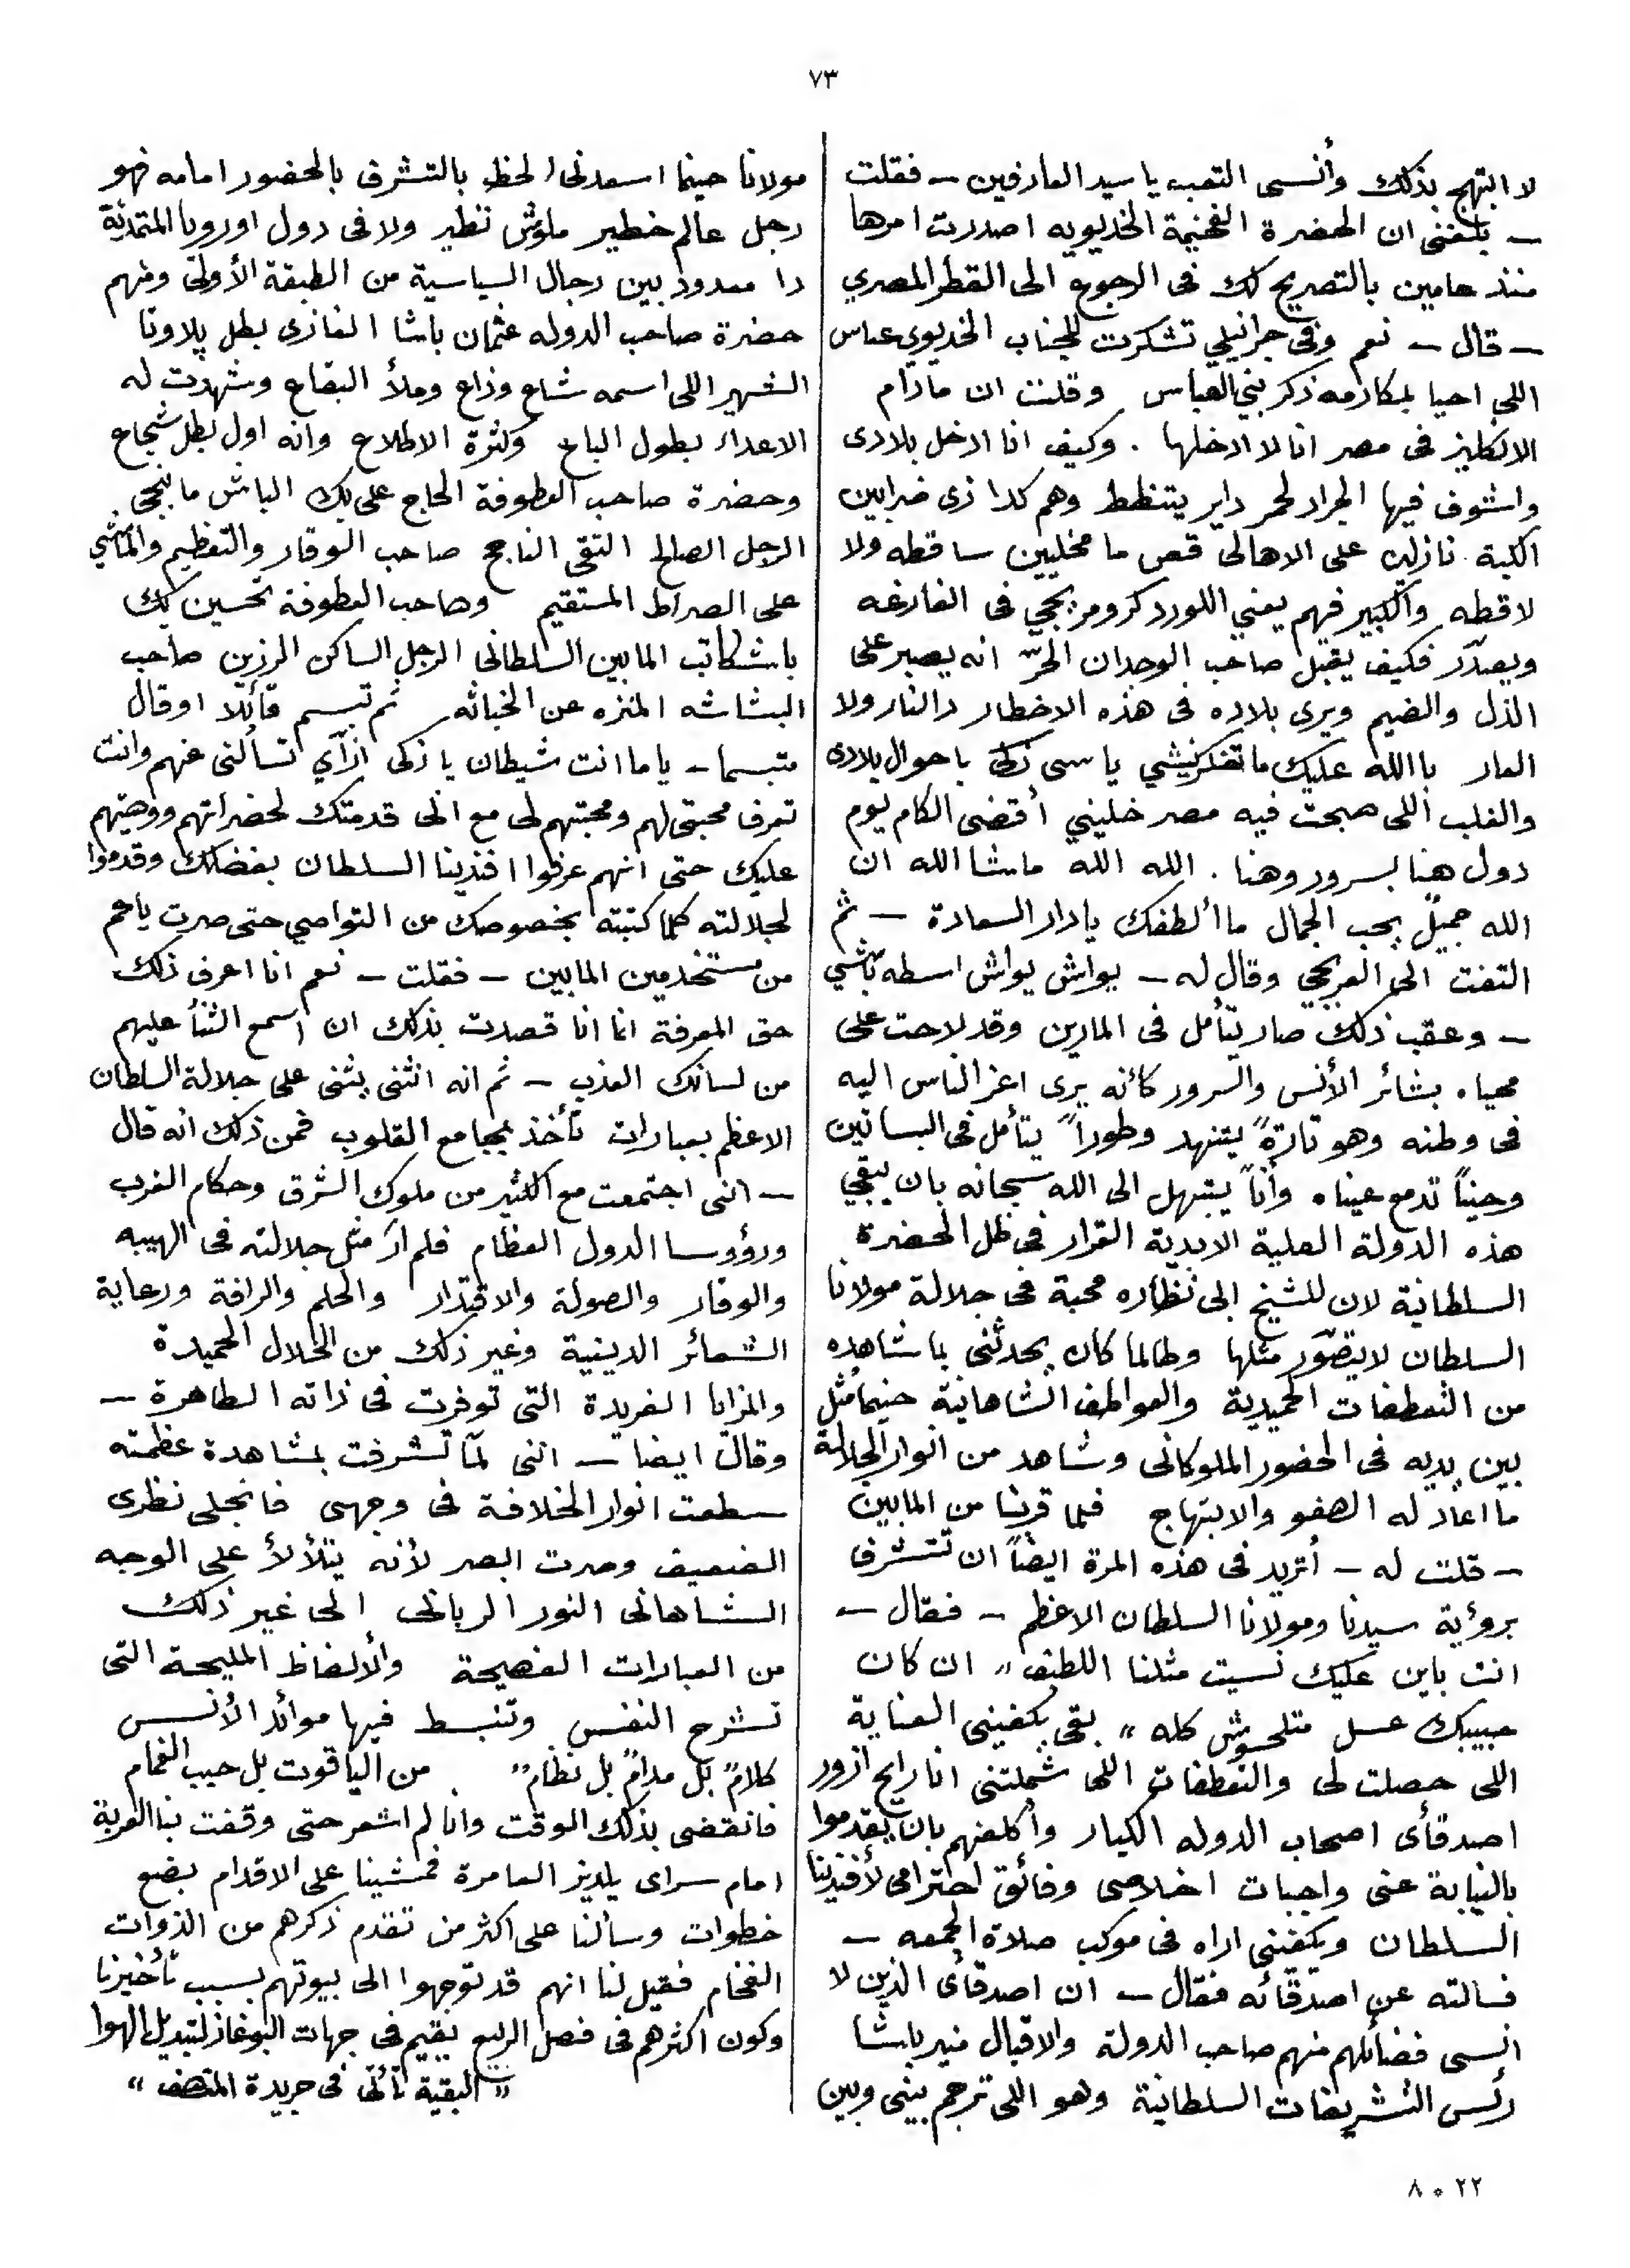 ٧٣
لا ابتهج بذلك وأنسى التعب يا سيد العارفين — فقلت
— بلغنى ان الحضرة الفخيمة الخديويه اصدرت امرها
منذ عامين بالتصريح لك فى الرجوع الى القطر المصري
— قال — نعم وفى جرانيلي تشكرت للجناب الخديوي عباس
اللى احيا بمكارمه ذكر بني العباس وقلت ان مادام
الانكليز فى مصر انا لا ادخلها . وكيف انا ادخل بلادى
واشوف فيها الجراد لحمر داير يتنطط وهم كدا زى ضرابين
الكبة نازلين على الاهالى قص ما مخليين ساقطه ولا
لاقطه والكبير فيهم يعني اللورد كرومر بجحي فى الفارغه
ويصدّر فكيف يقبل صاحب الوجدان الحرّ انه يصبر على
الذل والضيم ويرى بلاده فى هذه الاخطار والنار ولا
العار باالله عليك ما تفكرنيشي يا سى زكى باحوال بلادى
والغلب اللى صبحت فيه مصر خليني أقضى الكام يوم
دول هنا بسرور وهنا . الله الله ماشا الله ان
الله جميلٌ يحب الجمال ما ألطفك يا دار السعادة — ثم
التفت الى العربجي وقال له — يواش يواش اسطه باشي
— وعقب ذلك صار يتأمل فى المارين وقد لاحت على
محياه بشائر الأنس والسرور كانه يرى اعز الناس اليه
فى وطنه وهو تارةً يتنهد وطوراً يتأمل فى البساتين
وحيناً تدمع عيناه وأناً يبتهل الى الله سبحانه بان يبقي
هذه الدولة العلية الابدية القرار فى ظل الحضرة
السلطانية لان للشيخ ابى نظاره محبة فى جلالة مولانا
السلطان لا يتصوّر مثلها وطالما كان يحدثنى بما شاهده
من التعطفات الحميدية والعواطف الشاهانية حينما مثل
بين يديه فى الحضور الملوكانى وشاهد من انوار الجلالة
ما اعاد له الصفو والابتهاج فلما قربنا من المابين
— قلت له — أتريد فى هذه المرة ايضاً ان تتشرف
برؤية سيدنا ومولانا السلطان الاعظم — فقال —
انت باين عليك نسيت مثلنا اللطيف „ ان كان
حبيبك عسل متلحسوش كله „ بقى يكفينى العناية
اللى حصلت لى والتعطفات اللى شملتنى انا رايح ازور
اصدقأى اصحاب الدوله الكبار وأكلفهم بان يقدموا
بالنيابة عنى واجبات اخلاصى وفائق احترامى لأفندينا
السلطان ويكفينى اراه فى موكب صلاة الجمعه —
فسالته عن اصدقائه فقال — ان اصدقأى الذين لا
انسى فضائلهم منهم صاحب الدولة والاقبال منير باشا
رئس التشريفات السلطانية وهو اللى ترجم بينى وبين
مولانا حينما اسعدنى الحظ بالتشرف بالحضور امامه فهو
رجل عالم خطير ملوش نظير ولا فى دول اوروبا المتمدنة
دا معدود بين رجال السياسية من الطبقة الأولى ومنهم
حضرة صاحب الدوله عثمان باشا الغازى بطل پلاونا
الشهير اللى اسمه شاع وذاع وملأ البقاع وشهدت له
الاعداء بطول الباع وكثرة الاطلاع وانه اول بطل شجاع
وحضرة صاحب العطوفة الحاج على بك الباش مابنجي
الرجل الصالح التقى الناجح صاحب الوقار والتعظيم والماشي
على الصراط المستقيم وصاحب العطوفة تحسين بك
باشكاتب المابين السلطانى الرجل الساكن الرزين صاحب
البشاشه المنزه عن الخباثه ثم تبسم قائلا او قال
متبسما — ياما انت شيطان يا زكى ازاي تسألنى عنهم وانت
تعرف محبتى لهم ومحبتهم لى مع انى قدمتك لحضراتهم ووصيتهم
عليك حتى انهم عرفوا افندينا السلطان بفضلك وقدموا
لجلالته كلما كتبته بخصوصك من التواصي حتى صرت يا عم
من مستخدمين المابين — فقلت — نعم انا اعرف ذلك
حق المعرفة انما انا قصدت بذلك ان اسمع الثنأ عليهم
من لسانك العذب — ثم انه انثنى يثنى على جلالة السلطان
الاعظم بعبارات تأخذ بمجامع القلوب فمن ذلك انه قال
— اننى اجتمعت مع الكثير من ملوك الشرق وحكام الغرب
ورؤوسا الدول العظام فلم ارَ مثل جلالته فى الهيبه
والوقار والصولة والاقتدار والحلم والرافة ورعاية
الشعائر الدينية وغير ذلك من الخلال الحميدة
والمزايا الفريدة التى توفرت فى ذاته الطاهرة —
وقال ايضا — اننى لمّا تشرفت بمشاهدة عظمته
سطعت انوار الخلافة فى وجهى فانجلى نظرى
الضعيف وصرت ابصر لأنه يتلألأ على الوجه
الشاهانى النور الربانى الى غير ذلك
من العبارات الفصيحة والألفاظ المليحة التى
تشرح النفس وتنبسط فيها موائد الأنس
كلامٌ بل مدامٌ بل نظام„ من الياقوت بل حبب الغمام
فانقضى بذلك الوقت وانا لم اشعر حتى وقفت بنا العربة
امام سراى يلديز العامرة فمشينا على الاقدام بضع
خطوات وسألنا على اكثر من تقدم ذكرهم من الذوات
الفخام فقيل لنا انهم قد توجهوا الى بيوتهم بسبب تأخيرنا
وكون اكثرهم فى فصل الربيع يقيم فى جهات البوغاز لتبديل الهوا
„ البقية تأتى فى جريدة المنصف „
٢٢ ٥ ٨